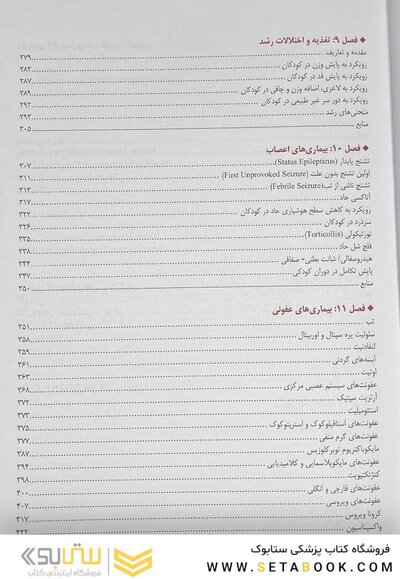 ◆ فصل ۹: تغذیه و اختلالات رشد
مقدمه و تعاریف ... ۲۷۹
رویکرد به پایش وزن در کودکان ... ۲۸۲
رویکرد به پایش قد در کودکان ... ۲۸۷
رویکرد به لاغری، اضافه وزن و چاقی در کودکان ... ۲۸۹
رویکرد به دور سر غیر طبیعی در کودکان ... ۲۹۲
منحنی‌های رشد ... ۲۹۳
منابع ... ۳۰۵
◆ فصل ۱۰: بیماری‌های اعصاب
تشنج پایدار (Status Epilepticus) ... ۳۰۷
اولین تشنج بدون علت (First Unprovoked Seizure) ... ۳۱۱
تشنج ناشی از تب (Febrile Seizure) ... ۳۱۳
آتاکسی حاد ... ۳۱۷
رویکرد به کاهش سطح هوشیاری حاد در کودکان ... ۳۲۲
سردرد در کودکان ... ۳۲۶
تورتیکولی (Torticollis) ... ۳۳۵
فلج شل حاد ... ۳۳۸
هیدروسفالی/ شانت بطنی- صفاقی ... ۳۴۴
پایش تکامل در دوران کودکی ... ۳۴۷
منابع ... ۳۵۰
◆ فصل ۱۱: بیماری‌های عفونی
تب ... ۳۵۱
سلولیت پره سپتال و اوربیتال ... ۳۵۸
لنفادنیت ... ۳۵۹
آبسه‌های گردنی ... ۳۶۱
اوتیت ... ۳۶۳
عفونت‌های سیستم عصبی مرکزی ... ۳۶۸
آرتریت سپتیک ... ۳۷۲
استئومیلیت ... ۳۷۳
عفونت‌های استافیلوکوک و استرپتوکوک ... ۳۷۵
عفونت‌های گرم منفی ... ۳۷۷
مایکوباکتریوم توبرکلوزیس ... ۳۸۷
عفونت‌های مایکوپلاسمایی و کلامیدیایی ... ۳۹۴
کنژنکتیویت ... ۳۹۸
عفونت‌های قارچی و انگلی ... ۴۰۰
عفونت‌های ویروسی ... ۴۰۷
کرونا ویروس ... ۴۱۷
واکسیناسیون ... ۴۲۲
فروشگاه کتاب پزشکی ستابوک
WWW.SETABOOK.COM
ستابوک
فروشگاه اینترنتی کتاب